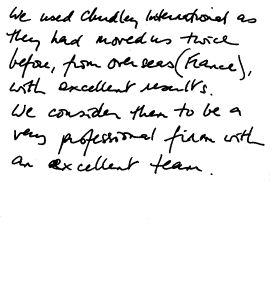 We used Chudley International as
they had moved us twice
before, from overseas (France),
with excellent results.
We consider them to be a
very professional firm with
an excellent team.